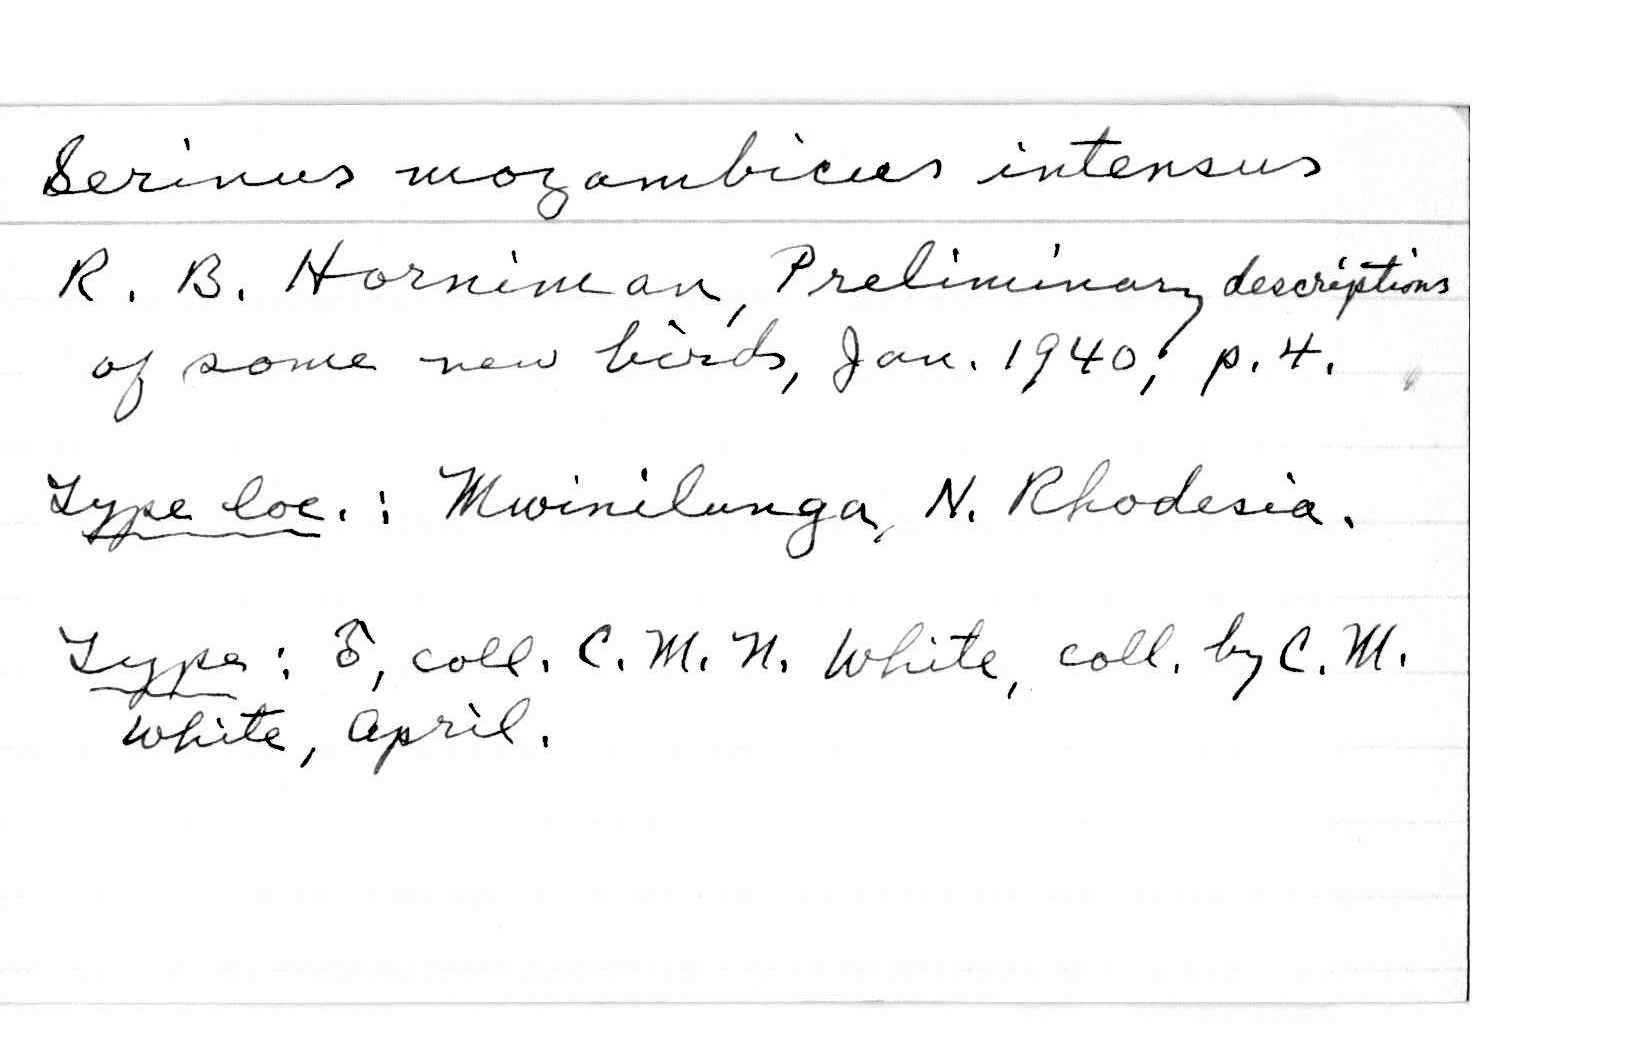 Serinus mozambicus intensus
R. B. Horniman, Preliminary descriptions
of some new birds, Jan. 1940, p. 4.
Type loc. : Mwinilunga, N. Rhodesia.
Type : ♂, coll. C. M. N. White, coll. by C. M.
White, April.